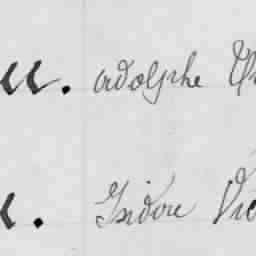 u. adolphe
. Isidore Vic